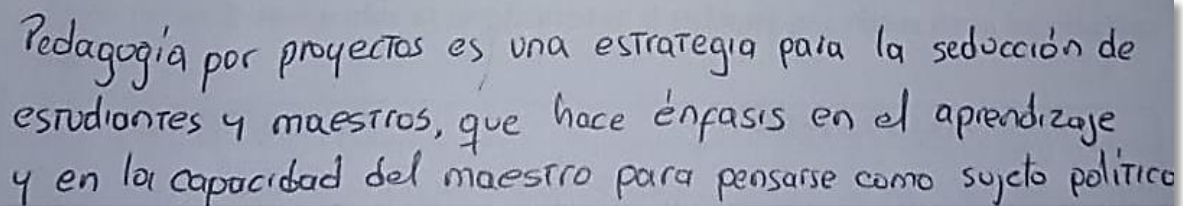 Pedagogía por proyectos es una estrategia para la seducción de
estudiantes y maestros, que hace énfasis en el aprendizaje
y en la capacidad del maestro para pensarse como sujeto político